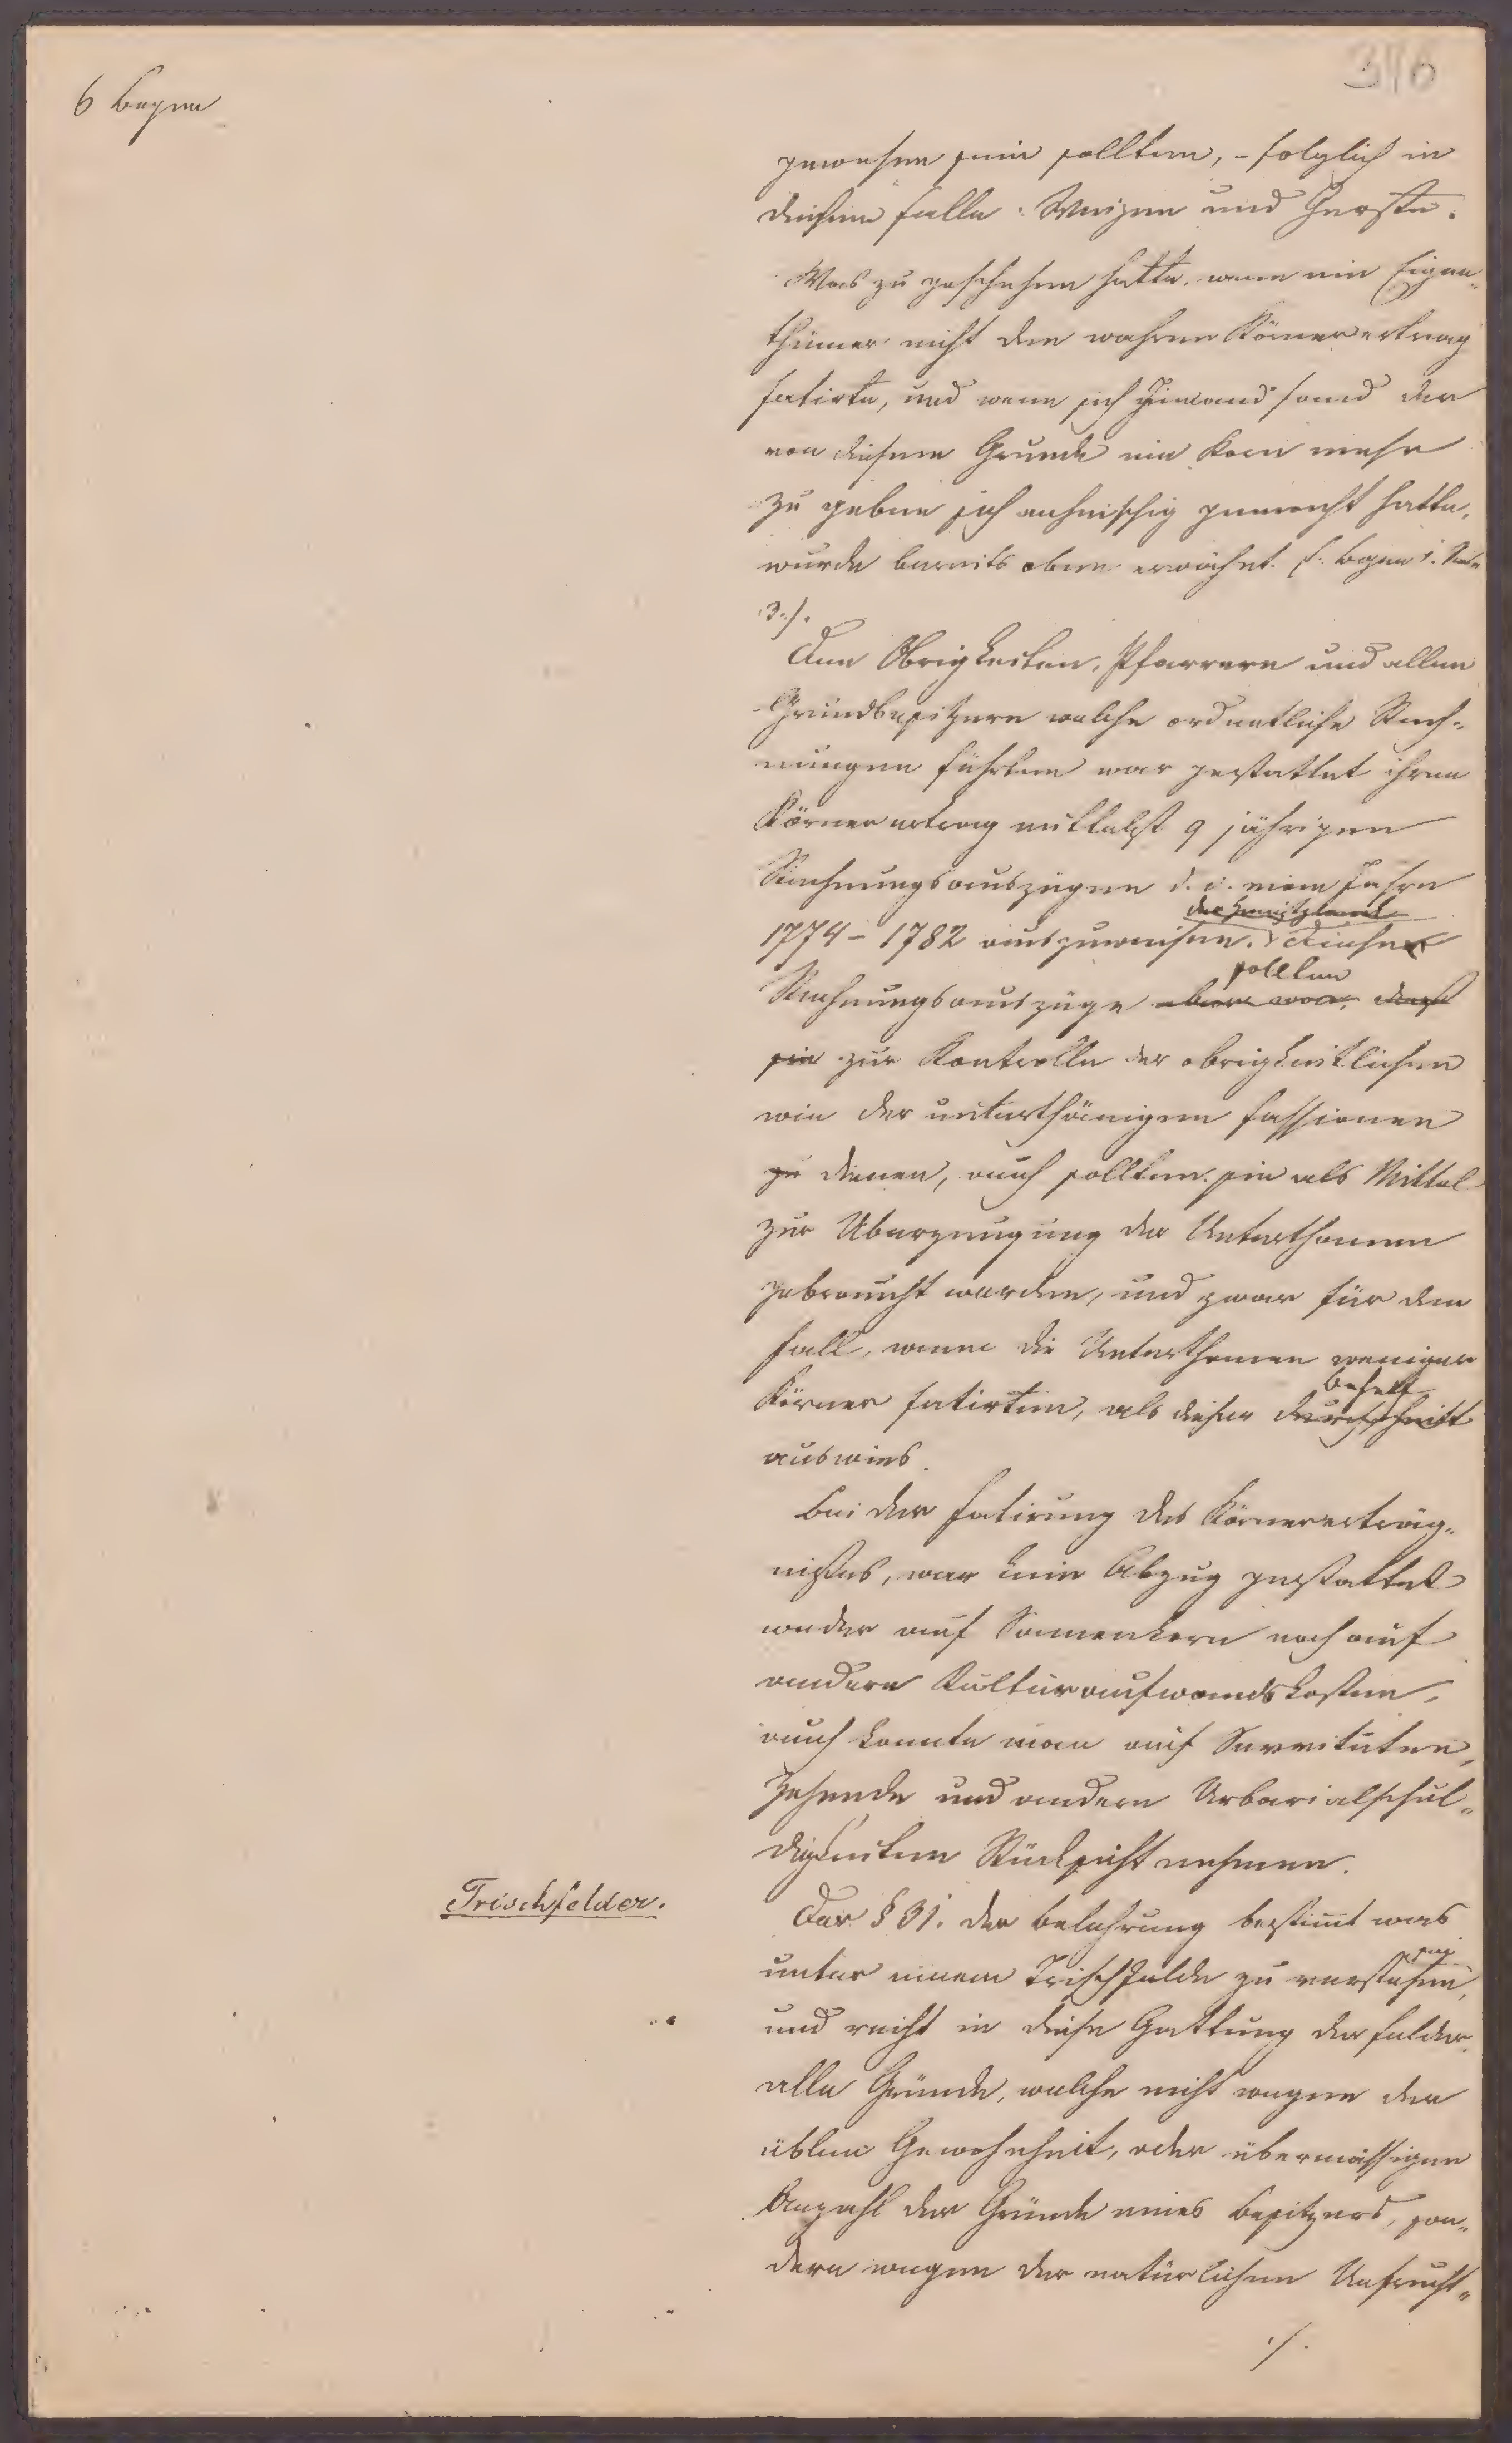 376
6 Bogen
gewesen sein sollten, – folglich in
diesem Falle: Weizen und Gerste.
Was zu geschehen hatte, wenn ein Eigen„
thümer nicht den wahren Körnerertrag
fatirte, und wenn sich Jemand fand der
von diesem Grunde ein Korn mehr
zu geben sich anheischig gemacht hatte,
wurde bereits oben erwähnt. /: Bogen 1. Seite
3:/.
Den Obrigkeiten, Pfarrern und allen
Grundbesitzern welche ordentliche Rech„
nungen führten war gestattet ihren
Körnerertrag mittelst 9 jährigen
Rechnungsauszügen d. i. vom Jahre
1774 – 1782 auszuweisen. Diese
Rechnungsauszüge aber war, daß
sollten
sie zur Kontrolle der obrigkeitlichen
wie der unterthänigen Fassionen
zu dienen, auch sollten sie als Mittel
zur Überzeugung der Unterthanen
gebraucht werden, und zwar für den
Fall, wenn die Unterthanen weniger
Körner fatirten, als dieser Durchschnitt
Behelf
auswies.
Bei der Fatirung des Körnererträg„
nißes, war kein Abzug gestattet
weder auf Samenkorn noch auf
andere Kulturaufwandskosten,
auch konnte man auf Servituten,
Zehende und andern Urbarialschul„
digkeiten Rücksicht nehmen.
Trischfelder.
Der § 31. der Belehrung bestimt was
unter einem Trischfelde zu verstehen
sei,
und reiht in diese Gattung der Felder,
alle Gründe, welche nicht wegen der
üblen Gewohnheit, oder übermässigen
Anzahl der Gründe eines Besitzers, son„
dern wegen der natürlichen Unfrucht„
./.